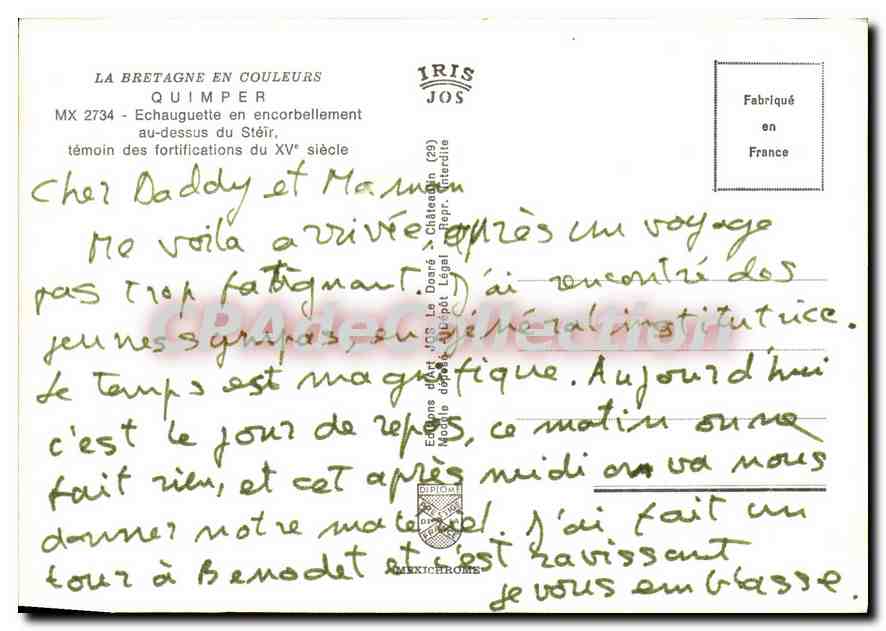 LA BRETAGNE EN COULEURS
QUIMPER
MX 2734 - Echauguette en encorbellement
au-dessus du Stéïr,
témoin des fortifications du XVe siècle
IRIS
JOS
Fabriqué
en
France
Editions d'Art JOS Le Doaré - Châteaulin (29)
Modèle déposé. Dépôt Légal Repr. Interdite
Cher Daddy et Maman
Me voila arrivée, après un voyage
pas trop fatignant. J'ai rencontré des
jeunes sympas, en général institutrice.
Le temps est magnifique. Aujourd'hui
c'est le jour de repos, ce matin on ne
fait rien, et cet après midi on va nous
donner notre matériel. J'ai fait un
tour à Benodet et c'est ravissant
je vous embrasse.
CPAdeCollection
DIPLOME
PRESTIGE
DE LA
FRANCE
MEXICHROME